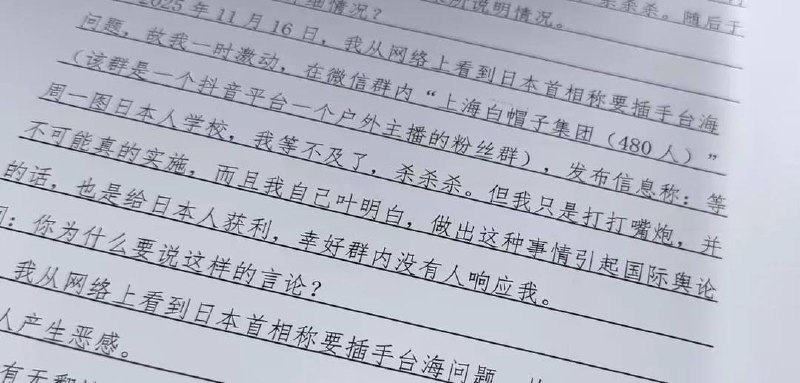 杀杀杀。随后于
细情况？
所说明情况。
2025 年 11 月 16 日，我从网络上看到日本首相称要插手台海
问题，故我一时激动，在微信群内“上海白帽子集团（480 人）”
（该群是一个抖音平台一个户外主播的粉丝群），发布信息称：等
周一图日本人学校，我等不及了，杀杀杀。但我只是打打嘴炮，并
不可能真的实施，而且我自己叶明白，做出这种事情引起国际舆论
的话，也是给日本人获利，幸好群内没有人响应我。
：你为什么要说这样的言论？
我从网络上看到日本首相称要插手台海问题，
人产生恶感。
有无翻